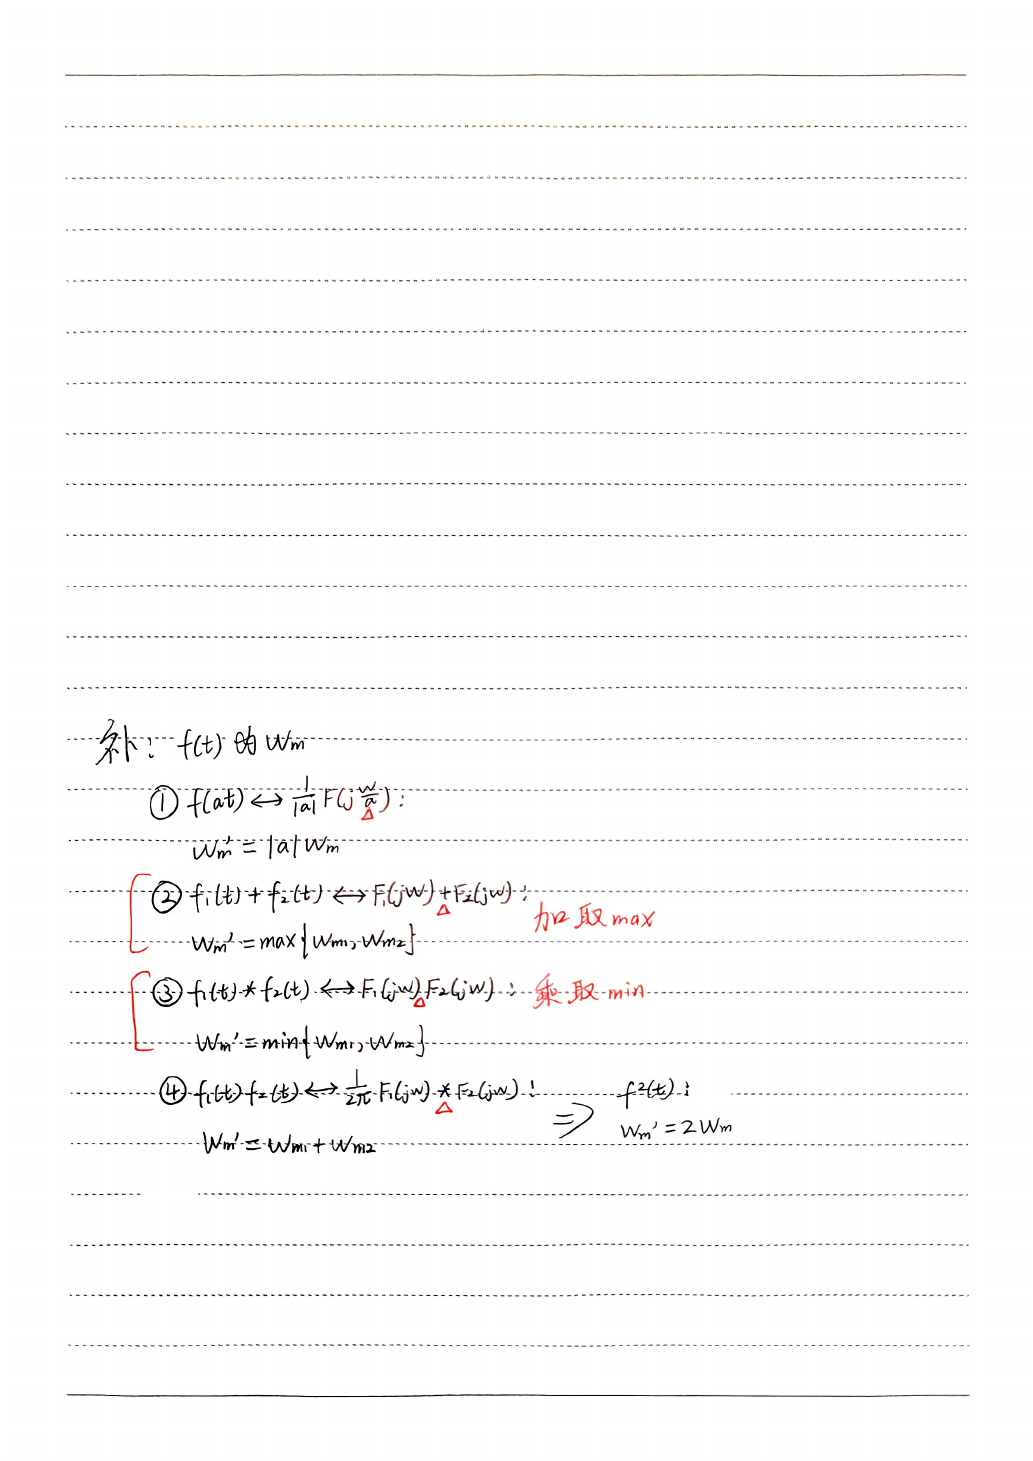 补：f(t) 的 Wm
① f(at) ↔ 1/|a| F(j w/a)：
Wm' = |a| Wm
② f₁(t) + f₂(t) ↔ F₁(jw) + F₂(jw)：
加取 max
Wm' = max{Wm1, Wm2}
③ f₁(t) * f₂(t) ↔ F₁(jw) F₂(jw)：乘取 min
Wm' = min{Wm1, Wm2}
④ f₁(t) f₂(t) ↔ 1/2π F₁(jw) * F₂(jw)： ⇒ f²(t)：
Wm' = 2Wm
Wm' = Wm1 + Wm2